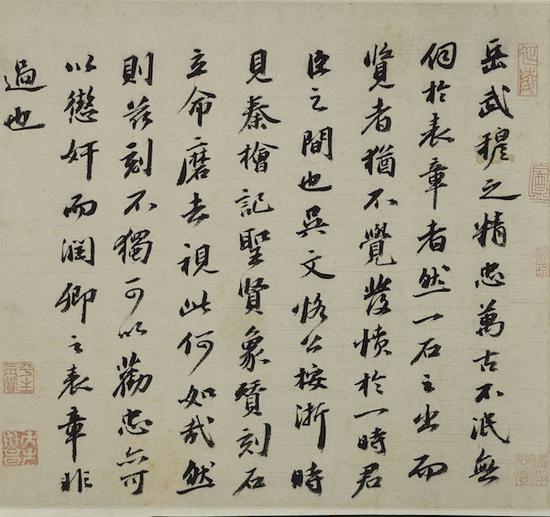 岳武穆之精忠萬古不泯無
何於表章者然一石之出而
覽者猶不覺發憤於一時君
臣之間也吳文恪公按浙時
見秦檜記聖賢象贊刻石
立命磨去視此何如哉然
則茲刻不獨可以勸忠亦可
以懲奸而潤卿之表章非
過也